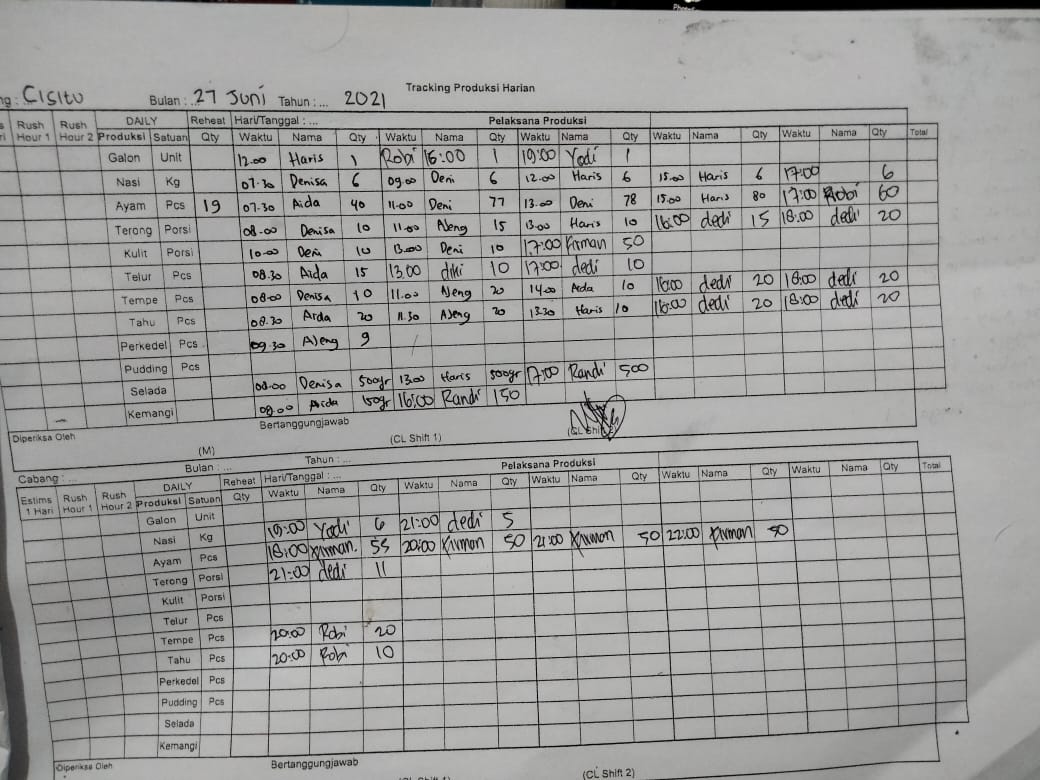 Tracking Produksi Harian
ng : CISITU Bulan : .. 27 Juni Tahun : ... 2021
Rush Hour 1 Rush Hour 2 DAILY Produksi Satuan Reheat Qty Hari/Tanggal : ... Pelaksana Produksi
Waktu Nama Qty Waktu Nama Qty Waktu Nama Qty Waktu Nama Qty Waktu Nama Qty Total
Galon Unit 12.00 Haris 1 Robi 16:00 1 19:00 Yadi 1
Nasi Kg 07.30 Denisa 6 09.00 Deni 6 12.00 Haris 6 15.00 Haris 6 17:00 6
Ayam Pcs 19 07.30 Aida 40 11.00 Deni 77 13.00 Deni 78 15.00 Haris 80 17:00 Robi 60
Terong Porsi 08.00 Denisa 10 11.00 Ajeng 15 13.00 Haris 10 16:00 dedi 15 18:00 dedi 20
Kulit Porsi 10.00 Deni 10 13.00 Deni 10 17:00 Firman 50
Telur Pcs 08.30 Aida 15 13.00 diki 10 17:00 dedi 10
Tempe Pcs 08.00 Denisa 10 11.00 Ajeng 20 14.00 Aida 10 16:00 dedi 20 18:00 dedi 20
Tahu Pcs 08.30 Aida 20 11.30 Ajeng 20 13.30 Haris 10 16:00 dedi 20 18:00 dedi 20
Perkedel Pcs 09.30 Ajeng 9
Pudding Pcs
Selada 08.00 Denisa 500gr 13.00 Haris 500gr 17:00 Randi 500
Kemangi 08.00 Aida 150gr 16:00 Randi 150
Diperiksa Oleh Bertanggungjawab
(M) (CL Shift 1)
Cabang : Bulan : ... Tahun : ...
Estims 1 Hari Rush Hour 1 Rush Hour 2 DAILY Produksi Satuan Reheat Qty Hari/Tanggal : ... Pelaksana Produksi
Waktu Nama Qty Waktu Nama Qty Waktu Nama Qty Waktu Nama Qty Waktu Nama Qty Total
Galon Unit
Nasi Kg 19:00 Yadi 6 21:00 dedi 5
Ayam Pcs 18:00 Firman. 55 20:00 Firman 50 21:00 Firman 50 22:00 Firman 50
Terong Porsi 21:00 dedi 11
Kulit Porsi
Telur Pcs
Tempe Pcs 20:00 Robi 20
Tahu Pcs 20:00 Robi 10
Perkedel Pcs
Pudding Pcs
Selada
Kemangi
Diperiksa Oleh Bertanggungjawab
(CL Shift 2)